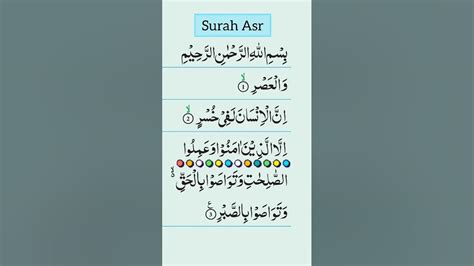 Surah Asr
بِسْمِ اللهِ الرَّحْمٰنِ الرَّحِيْمِ
وَالْعَصْرِ ۙ﴿1﴾
اِنَّ الْاِنْسَانَ لَفِيْ خُسْرٍ ۙ﴿2﴾
اِلَّا الَّذِيْنَ اٰمَنُوْا وَعَمِلُوا
الصّٰلِحٰتِ وَتَوَاصَوْا بِالْحَقِّ
وَتَوَاصَوْا بِالصَّبْرِ ۧ﴿3﴾